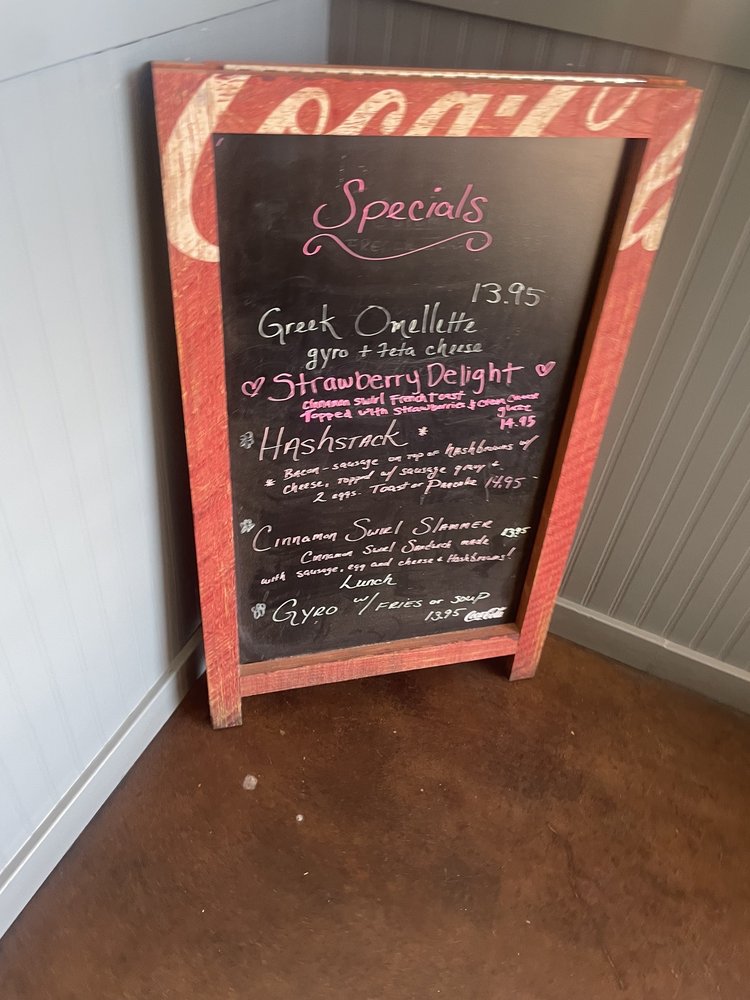 Coca-Co
Specials
13.95
Greek Omellette
gyro + feta cheese
Strawberry Delight
cinnamon swirl French toast
Topped with strawberries & cream cheese
glaze
14.95
HASHSTACK
BACON-SAUSAGE ON TOP OF HASHBROWNS W/
CHEESE, TOPPED W/ SAUSAGE GRAVY &
2 EGGS. TOAST OR PANCAKE 14.95
CINNAMON SWIRL SLAMMER 13.95
CINNAMON SWIRL SANDWICH MADE
WITH SAUSAGE, EGG AND CHEESE & HASHBROWNS!
Lunch
GYRO W/ FRIES OR SOUP
13.95 Coca-Cola